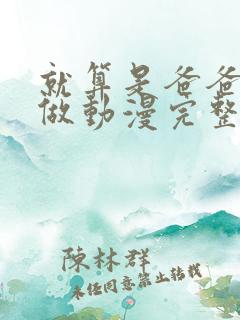 就算是爸爸
做動漫完整
陳林群
未经同意禁止转载